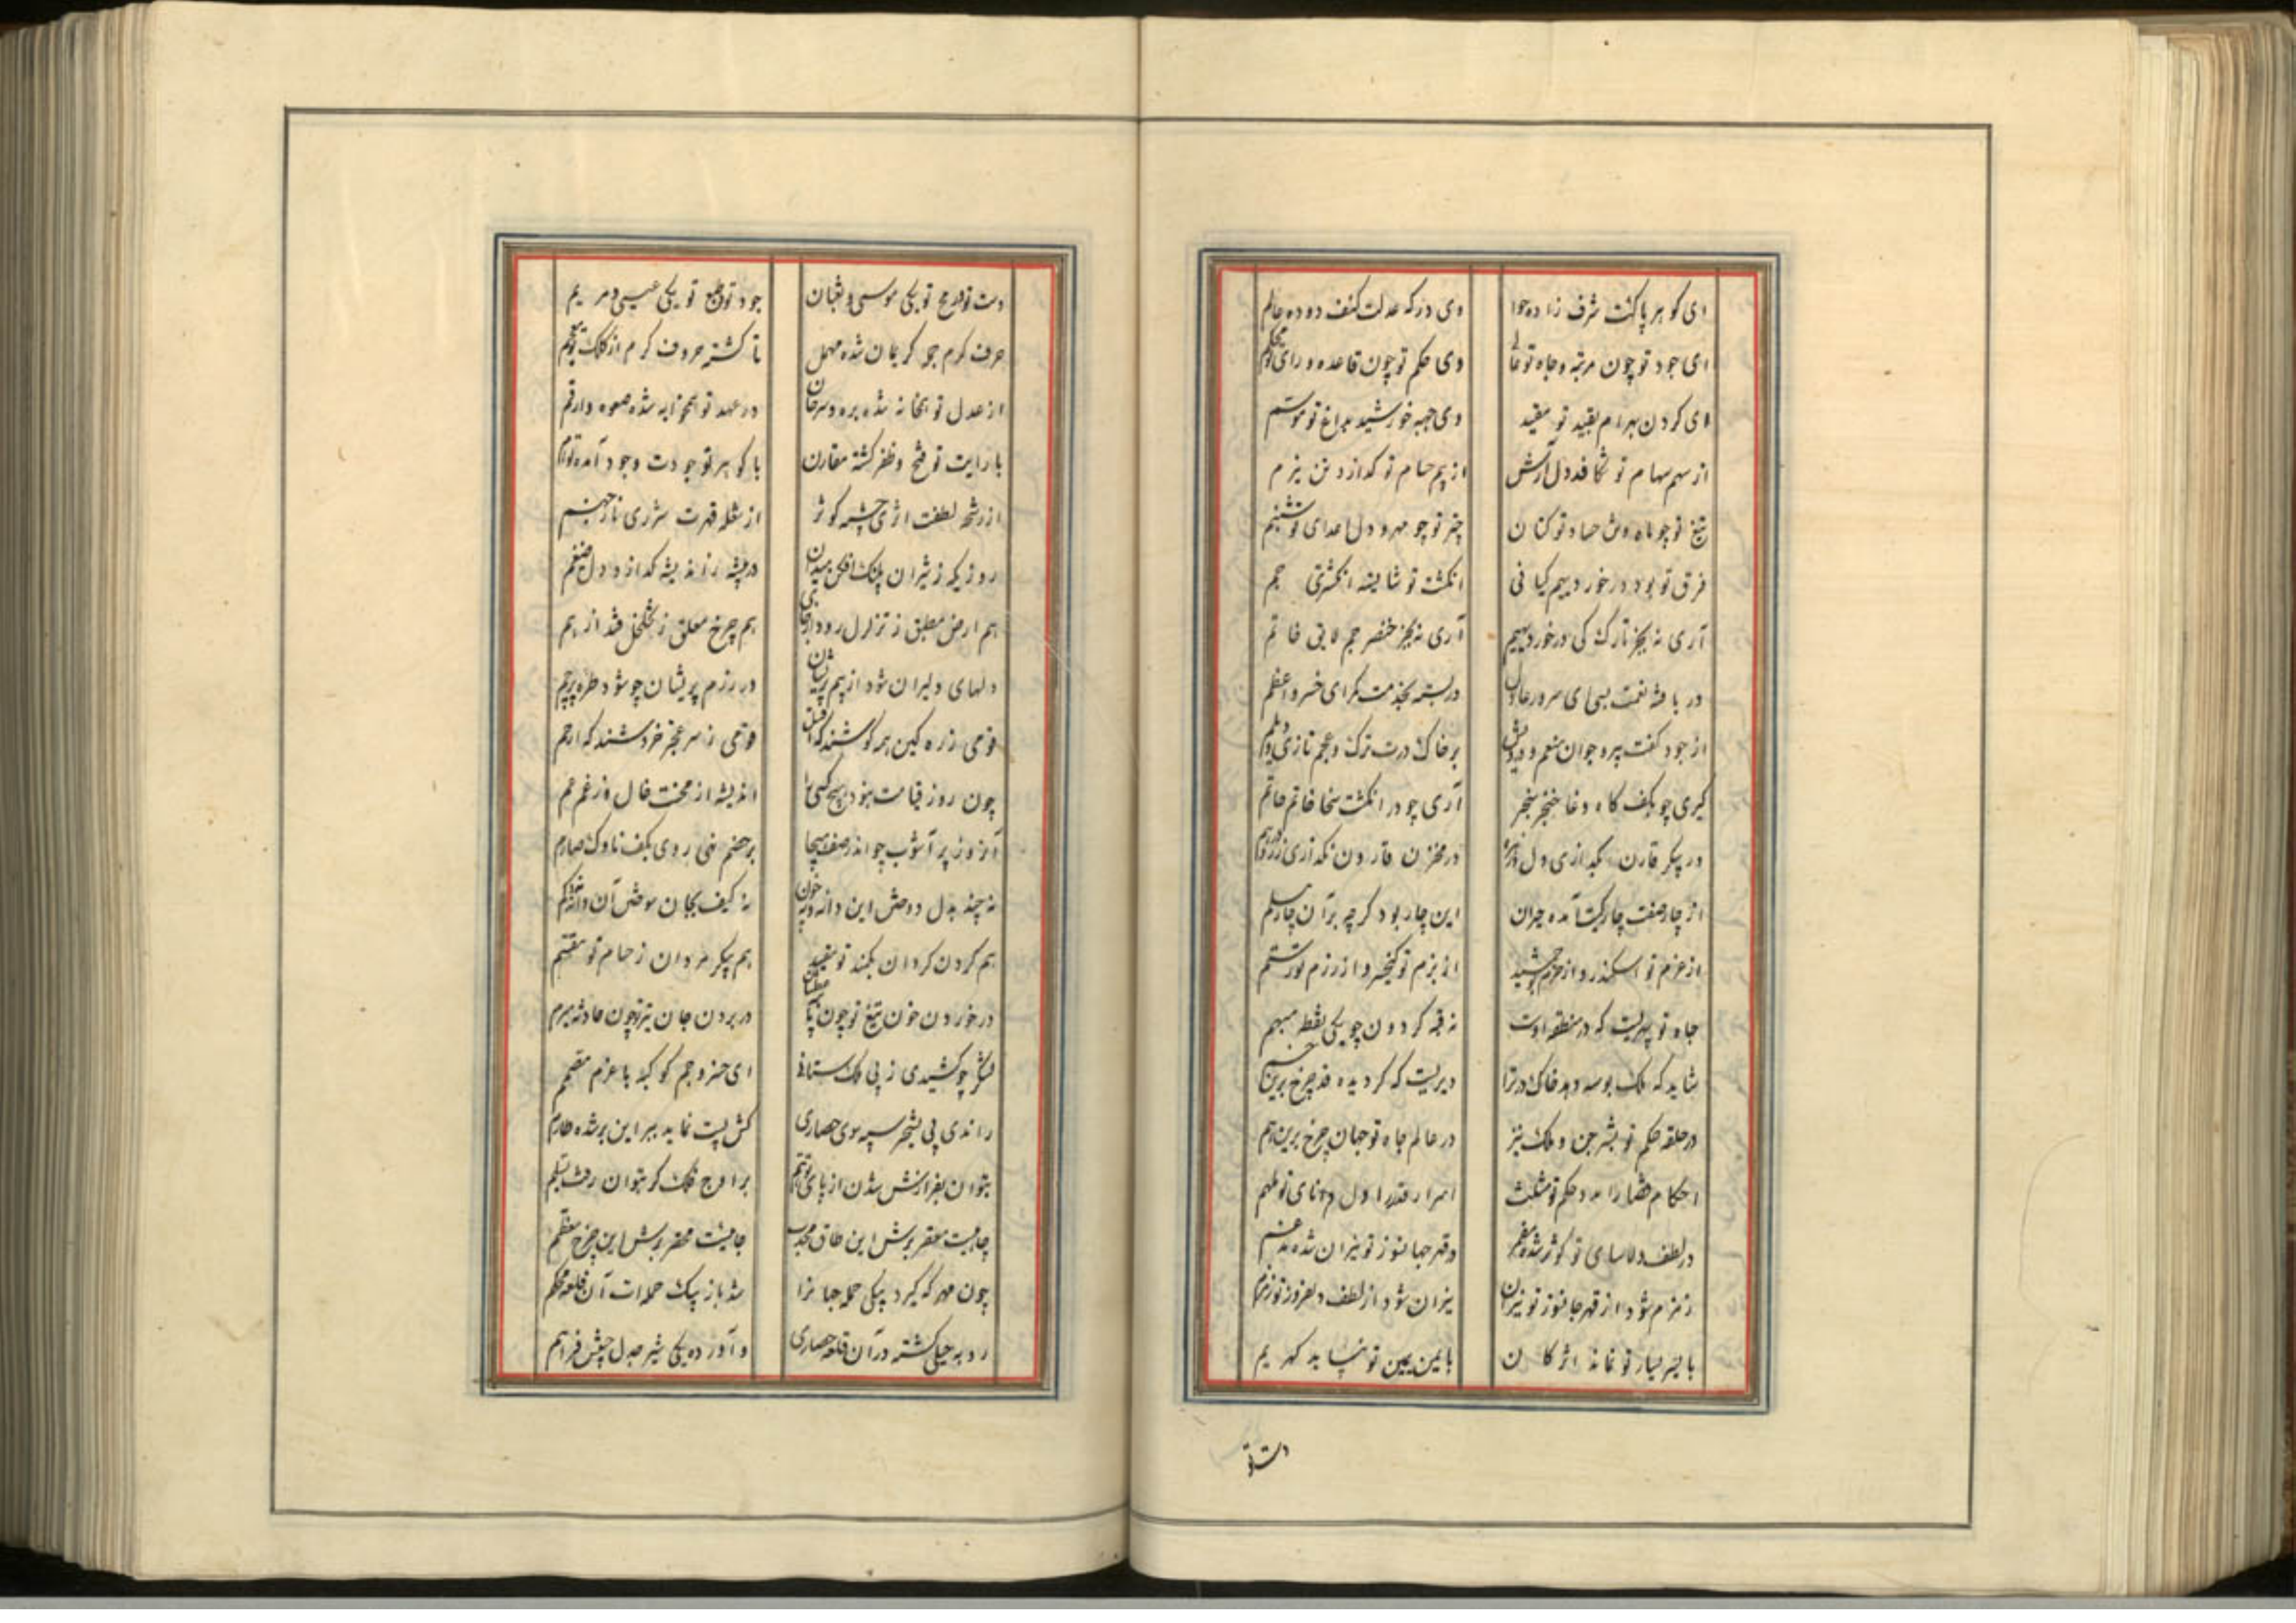 ای گوهر پاکت شرف زاده حوا وی درکه عدلت کنف دوده عالم
ای جود تو چون مرتبه و جاه تو عالی وی حکم تو چون قاعده و رای تو محکم
ای گردن بهرام بقید تو مقید وی جبهه خورشید بداغ تو موسم
از سهم سهام تو شکافد دل آرش از بیم حسام تو گدازد تن نیرم
تیغ تو چو ماه و تن حساد تو کتان چتر تو چو مهر و دل اعدای تو شبنم
فرق تو بود درخور دیهیم کیانی انگشت تو شایسته انگشتری جم
آری نه بجز تارک کی درخور دیهیم آری نه بجز خنصر جم لایق خاتم
در یافته نعمت بسی ای سرور عادل در بسته بخدمت کمر ای خسرو اعظم
از جود کفت پیر و جوان منعم و درویش بر خاک درت ترک و عجم تازی و دیلم
گیری چو بکف گاه وغا خنجر سنجر آری چو در انگشت سخا خاتم حاتم
در پیکر قارن بگدازی دل در مخزن قارون نگذاری زر و درهم
از چار صفت چار کست آمده حیران این چار بود گرچه بر آن چار مسلم
از عزم تو اسکندر و از حزم تو جمشید از بزم تو کیخسرو و از رزم تو رستم
جاه تو سپهریست که در منطقه اوست نه قبه گردون چو یکی نقطه مبهم
شاید که ملک بوسه دهد خاک درت را دیریست که گردیده قد چرخ برین خم
در حلقه حکم تو بشر جن و ملک نیز در عالم جاه تو جهان چرخ برین هم
احکام قضا را مدد حکم تو مثبت اسرار قدر را دل دانای تو ملهم
در لطف دلاسای تو کوثر شده مضمر وز قهر جهانسوز تو نیران شده مدغم
زمزم شود از قهر جهانسوز تو نیران نیران شود از لطف دلفروز تو زمزم
با یسر یسار تو نماند اثر کان با یمن یمین تو نپاید گهر یم
دست تو
دست تو و رمح تو یکی موسی و ثعبان جود تو و طبع تو یکی عیسی و مریم
حرف کرم جمله کریمان شده مهمل تا گشته حروف کرم از کلک تو معجم
از عدل تو همخانه شده بره و سرحان در عهد تو همخوابه شده صعوه و ارقم
با رایت تو فتح و ظفر گشته مقارن با گوهر تو جود و وجود آمده توام
از رشحه لطفت اثری چشمه کوثر از شعله قهرت شرری نار جهنم
روزیکه ز شیران پلنگ افکن میدان در بیشه ز اندیشه گدازد دل ضیغم
هم ارض مطبق ز تزلزل رود از جای هم چرخ معلق ز تخلخل فتد از هم
دلهای دلیران شود از بیم پریشان در رزم پریشان چو شود طره پرچم
قومی ز ره کین همه کوشند که اقتل قومی ز سر عجز خروشند که ارحم
چون روز قیامت نبود هیچ کسی را اندیشه از محنت خال و ز غم عم
آنروز پر آشوب چو اندر صف هیجا بر خصم نهی روی بکف ناوک و صارم
هم گردن گردان بکمند تو مقید هم پیکر مردان ز حسام تو مقسم
در خوردن خون تیغ تو چون در بردن جان تیر تو چون حادثه مبرم
لشکر چو کشیدی ز پی ملک ستانی ای خسرو جم کوکبه با عزم مصمم
راندی پی تسخیر سپه سوی حصاری کش پست نماید ببر این برشده طارم
بتوان بفرازش شدن از پای توهم بر اوج فلک گر بتوان رفت بسلم
چاهیست مقعر برش این طاق محدب جاییست محقر برش این چرخ معظم
چون مهر که گیرد بیکی حمله جهانرا شد باز بیک حمله ات آن قلعه محکم
روبه خیلی گشته در آن قلعه حصاری و آورده یکی شیر مبدل جیش فراهم